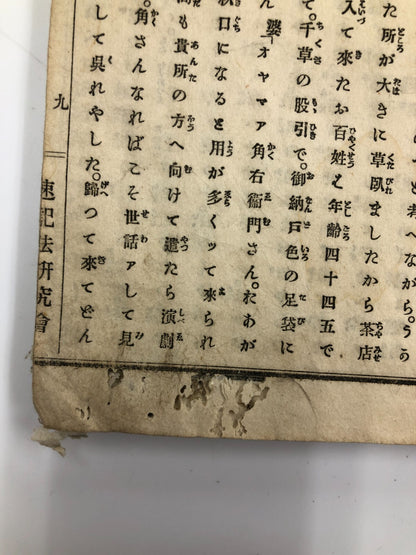 と考へながら。うう
た所が大きに草臥ましたから茶店
入て來たお百姓は年齡四十四五で
て。千草の股引で。御納戸色の足袋に
ん 婆「オヤマア角右衞門さん。たあが
秋口になると用が多くッて來られ
も貴所の方へ向けて遣たら演劇
。角さんなればこそ世話アして見
して呉れやした。歸つて來てどん
九
速記法研究會